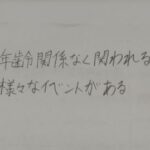 年齢関係なく関われる
様々なイベントがある